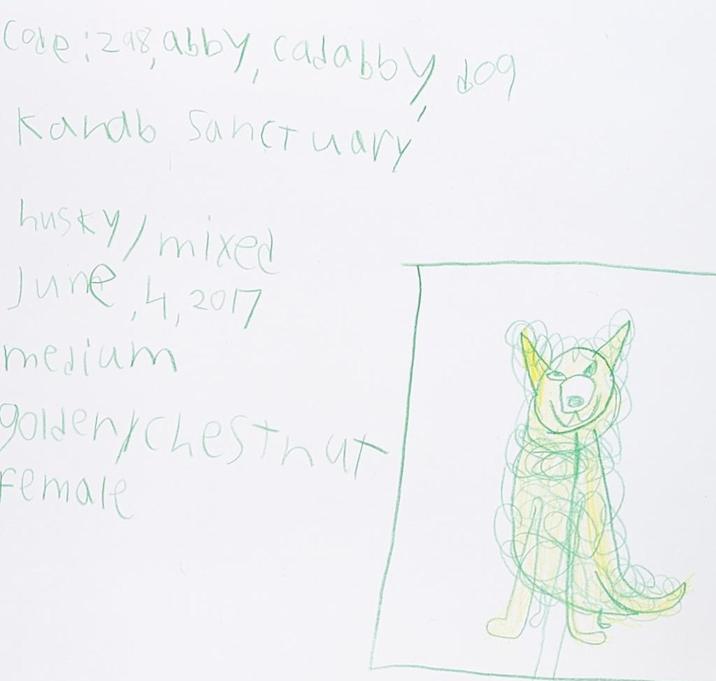 Code:298,abby, cadabby, dog
Kanab Sanctuary
husky/mixed
June,4,2017
medium
golden/chestnut
female